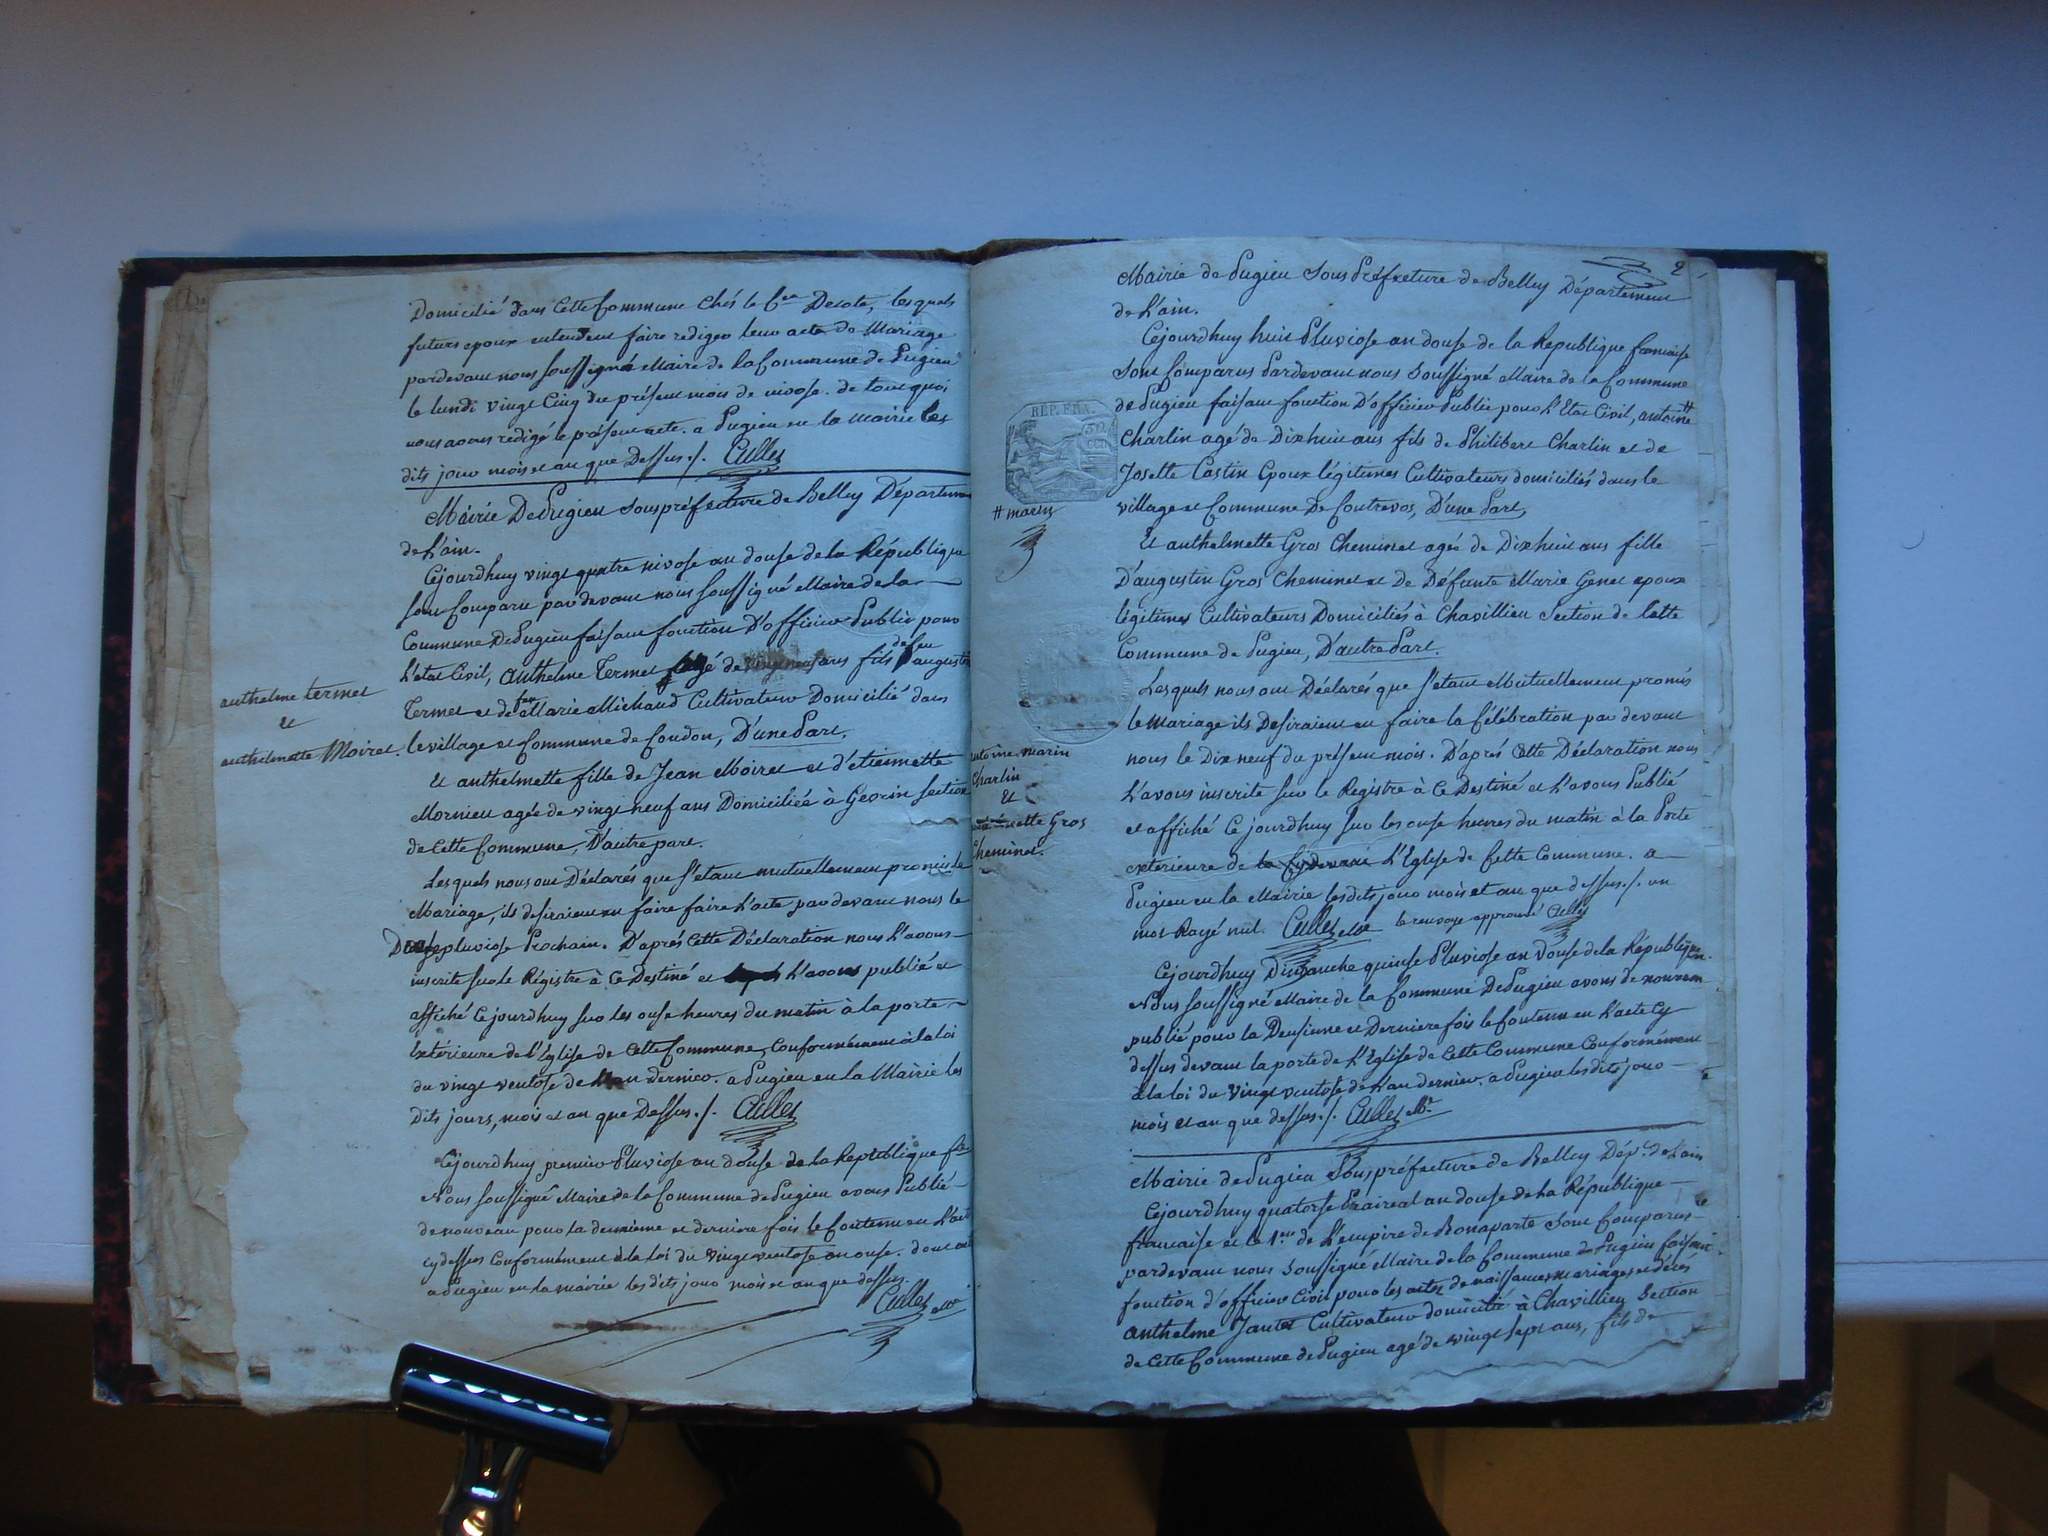 Domicilié dans Cette Commune Chés le Cen Decote, les quels
futurs epoux entendent faire rediger leur acte de Mariage
pardevant nous soussigné Maire de la Commune de Pugieu
le lundi vingt Cinq du présent mois de nivose. de tout quoi
nous avons redigé le présent acte. a Pugieu en la Mairie les
dits jour mois et an que Dessus ./. Cullet
Mairie De Pugieu Souspréfecture de Belley Departement
de L'ain.
Cejourdhuy vingt quatre nivose an douse de la République
sont Comparu par devant nous soussigné Maire de la
Commune De Pugieu faisant fonction D'officier Public pour
L'etat Civil, Anthelme Termet agé de vingt neuf ans fils de feu augustin
anthelme termet
et
anthelmette Moiret.
Termet et de feu Marie Michaud Cultivateur Domicilié dans
le village et Commune de Condon, D'une Part,
Et anthelmette fille de Jean Moiret et d'etiennette
Mornieu agée de vingt neuf ans Domiciliée à Gevrin section
de Cette Commune, D'autre part.
Lesquels nous ont Déclarés que s'etant mutuellement promis le
Mariage, ils desiraient en faire faire L'acte par devant nous le
Douse pluviose Prochain. D'aprés Cette Déclaration nous L'avons
inscrite sur le Régistre à Ce Destiné et L'avons publié et
affiché Cejourdhuy sur les onse heures du matin à la porte
Exterieure de l'Eglise de Cette Commune, Conformément à la loi
du vingt ventose de L'an dernier. a Pugieu en la Mairie les
Dits jours, mois et an que Dessus ./. Cullet
Cejourdhuy premier Pluviose an douse de la Republique fse
Nous soussigné Maire de la Commune de Pugieu avons Publié
de nouveau pour la deuxieme et derniere fois le Contenu en L'acte
cydessus Conformément à la loi du vingt ventose an onse. dont acte
a Pugieu en la mairie les dits jour mois et an que dessus.
Cullet Mre
2
Mairie de Pugieu Sous Préfecture de Belley Département
de L'ain.
Cejourdhuy huit Pluviose an douse de la Republique francaise
Sont Comparus Pardevant nous Soussigné Maire de la Commune
de Pugieu faisant fonction D'officier Public pour L'Etat Civil, antoine #
Charlin agé de Dix huit ans fils de Philibert Charlin et de
Josette Castin Epoux légitimes Cultivateurs domiciliés dans le
village et Commune De Contrevos, D'une Part,
REP. FRA.
# marin
Et anthelmette Gros Cheminet agée de Dix huit ans fille
D'augustin Gros Cheminet et De Défunte Marie Genet epoux
légitimes Cultivateurs Domiciliés à Chavillieu Section de Cette
Commune de Pugieu, D'autre Part.
Lesquels nous ont Déclarés que s'etant Mutuellement promis
le mariage ils Desiraient en faire la Célébration par devant
nous le Dix neuf du présent mois. D'aprés Cette Déclaration nous
L'avons inscrite sur le Registre à Ce Destiné et L'avons Publié
et affiché Ce jourdhuy sur les onse heures du matin à la Porte
antoine marin
Charlin
et
Gros
Cheminet.
exterieure de la Cydevant L'Eglise de Cette Commune. a
Pugieu en la Mairie les dits jour mois et an que dessus ./. un
mot Rayé nul. Cullet Mre le renvoye approuvé Cullet
Cejourdhuy Dimanche quinse Pluviose an Douse de la République.
Nous soussigné Maire de la Commune De Pugieu avons de nouveau
publié pour la Deusieme et Derniere fois le Contenu en L'acte Cy
dessus devant la porte de L'Eglise de Cette Commune Conformément
à la loi du vingt ventose de L'an dernier. a Pugieu les dits jour
mois et an que dessus ./. Cullet Mre
Mairie de Pugieu Souspréfecture de Belley Dépt. de L'ain
Cejourdhuy quatorse Prairial an douse de la République
francaise et le 1er de L'empire de Bonaparte Sont Comparus
pardevant nous Soussigné Maire de la Commune de Pugieu faisant
fonction d'officier Civil pour les actes de naissances mariages et décés
anthelme Jantet Cultivateur domicilié à Chavillieu Section
de Cette Commune de Pugieu agé de vingt sept ans, fils de